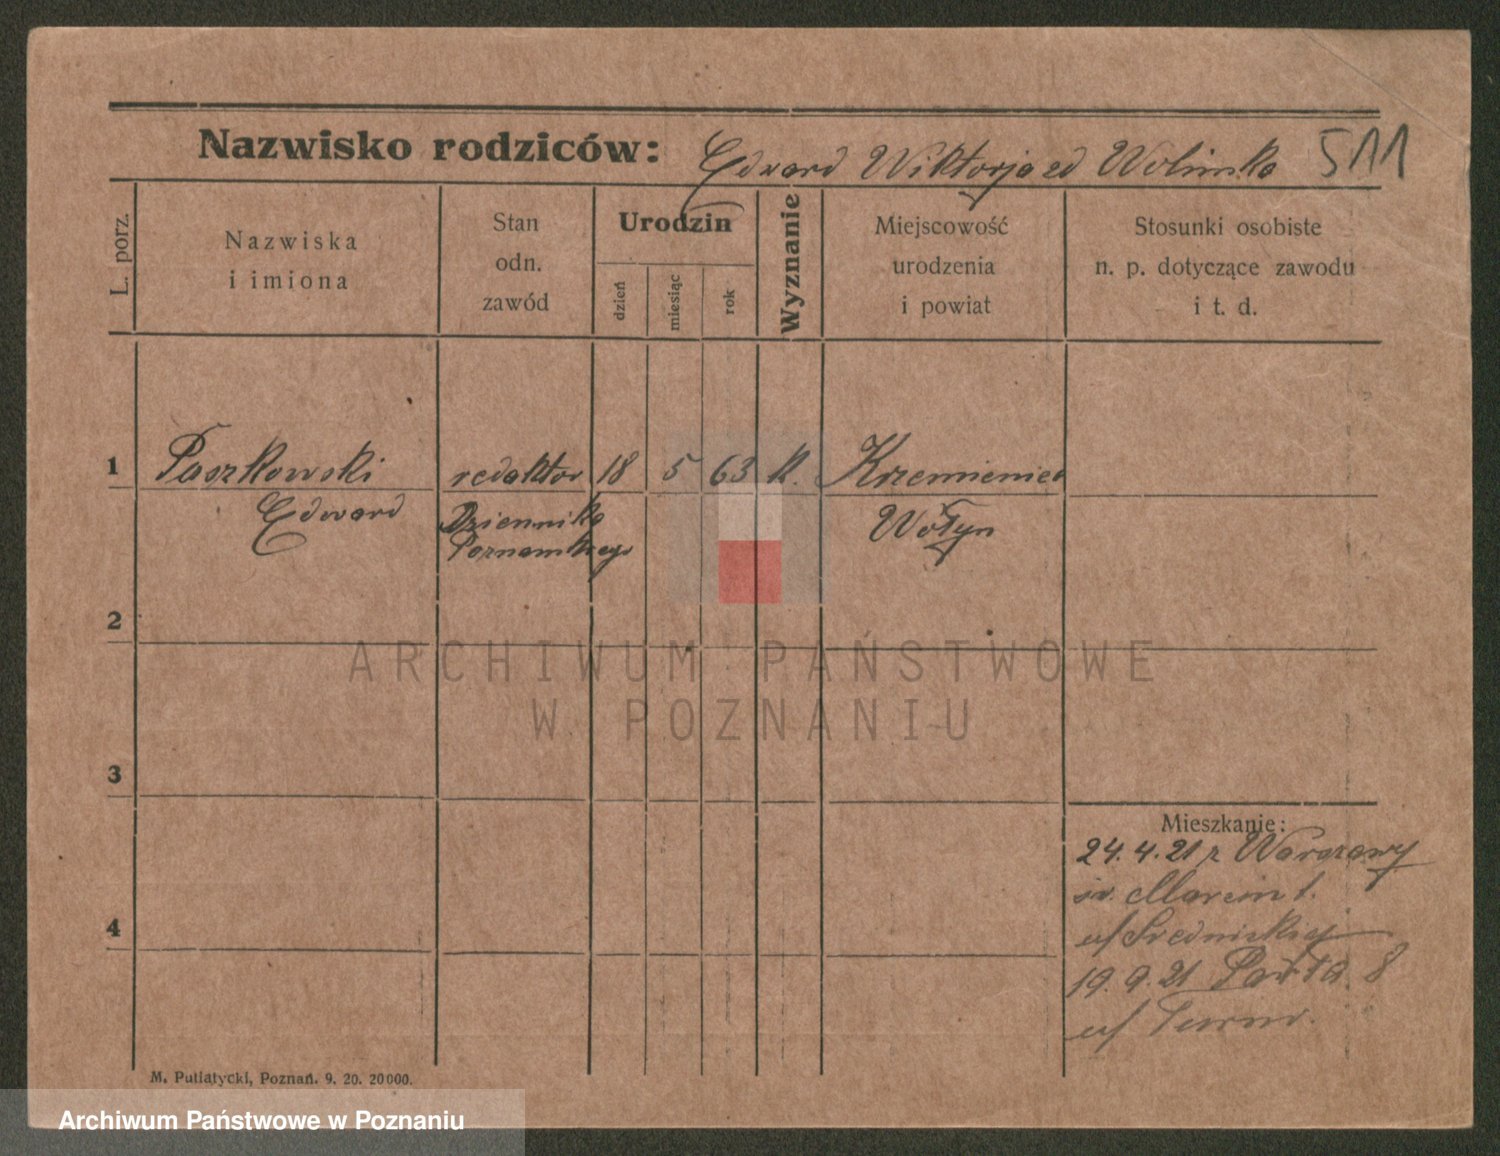 Nazwisko rodziców: Edward Wiktorja zd Wolinska 511
L. porz.
Nazwiska
i imiona
Stan
odn.
zawód
Urodzin
dzień
miesiąc
rok
Wyznanie
Miejscowość
urodzenia
i powiat
Stosunki osobiste
n. p. dotyczące zawodu
i t. d.
1 Paszkowski redaktor 18 5 63 k. Krzemieniec
Edward Dziennika Wołyn
Poznanskiego
2
ARCHIWUM PAŃSTWOWE
W POZNANIU
3
Mieszkanie:
24.4.21 z Warszawy
św. Marcin 1.
4
19.9.21 8
M. Putiatycki, Poznań. 9. 20. 20000.
Archiwum Państwowe w Poznaniu